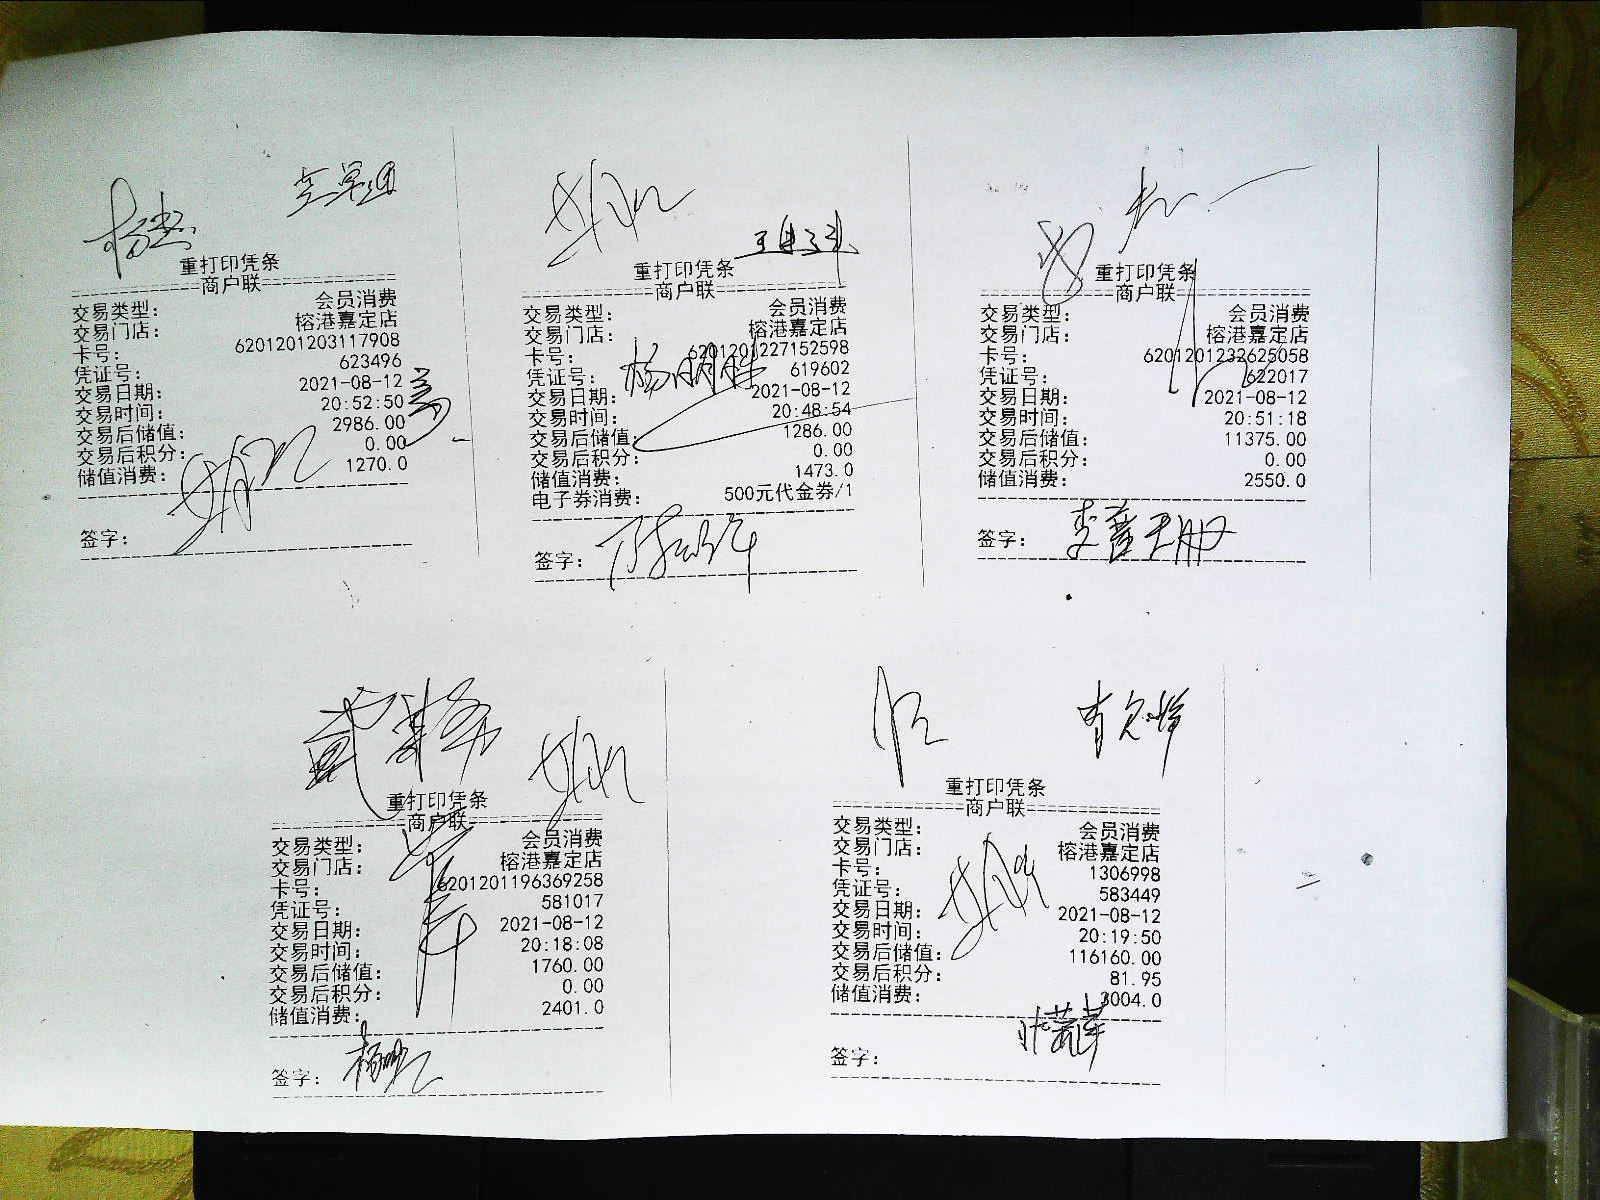 重打印凭条
商户联
交易类型： 会员消费
交易门店： 榕港嘉定店
卡号： 6201201203117908
凭证号： 623496
交易日期： 2021-08-12
交易时间： 20:52:50
交易后储值： 2986.00
交易后积分： 0.00
储值消费： 1270.0
签字：
重打印凭条
商户联
交易类型： 会员消费
交易门店： 榕港嘉定店
卡号： 6201201227152598
凭证号： 619602
杨明胜
交易日期： 2021-08-12
交易时间： 20:48:54
交易后储值： 1286.00
交易后积分： 0.00
储值消费： 1473.0
电子券消费： 500元代金券/1
签字：
重打印凭条
商户联
交易类型： 会员消费
交易门店： 榕港嘉定店
卡号： 6201201232625058
凭证号： 622017
交易日期： 2021-08-12
交易时间： 20:51:18
交易后储值： 11375.00
交易后积分： 0.00
储值消费： 2550.0
签字：
重打印凭条
商户联
交易类型： 会员消费
交易门店： 榕港嘉定店
卡号： 6201201196369258
凭证号： 581017
交易日期： 2021-08-12
交易时间： 20:18:08
交易后储值： 1760.00
交易后积分： 0.00
储值消费： 2401.0
签字：
重打印凭条
商户联
交易类型： 会员消费
交易门店： 榕港嘉定店
卡号： 1306998
凭证号： 583449
交易日期： 2021-08-12
交易时间： 20:19:50
交易后储值： 116160.00
交易后积分： 81.95
储值消费： 3004.0
签字：